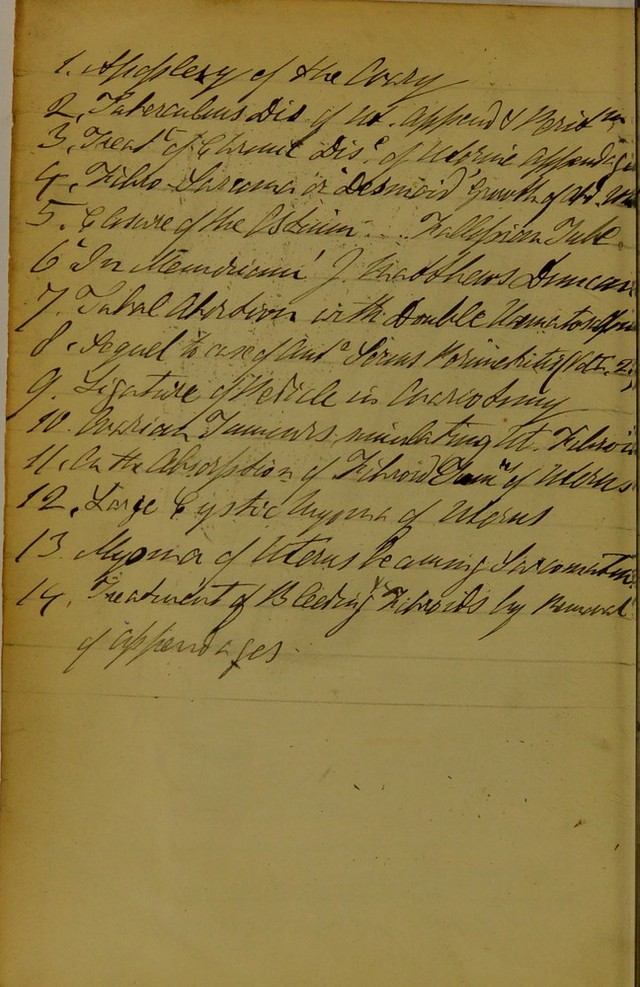 1. Apoplexy of the Ovary
2. Tuberculous Dis. of Ut. Append & Perit
3. Treatt of Chronic Dise of Uterine Appendages
4. Fibro-Sarcoma or "Desmoid" Growth of Ab.
5. Closure of the Ostium... Fallopian Tube
6 "In Memoriam" J. Matthews Duncan
7. Tubal Abortion with Double
8. Sequel to case of Serous Perimetritis (Vol I. 2
9. Ligature of Pedicle in Ovariotomy
10. Ovarian Tumours, simulating Ut. Fibroid
11. On the Absorption of Fibroid Tumrs of Uterus
12. Large Cystic Myoma of Uterus
13. Myoma of Uterus becoming Sarcomatous
14. Treatment of Bleeding Fibroids by Removal
of Appendages